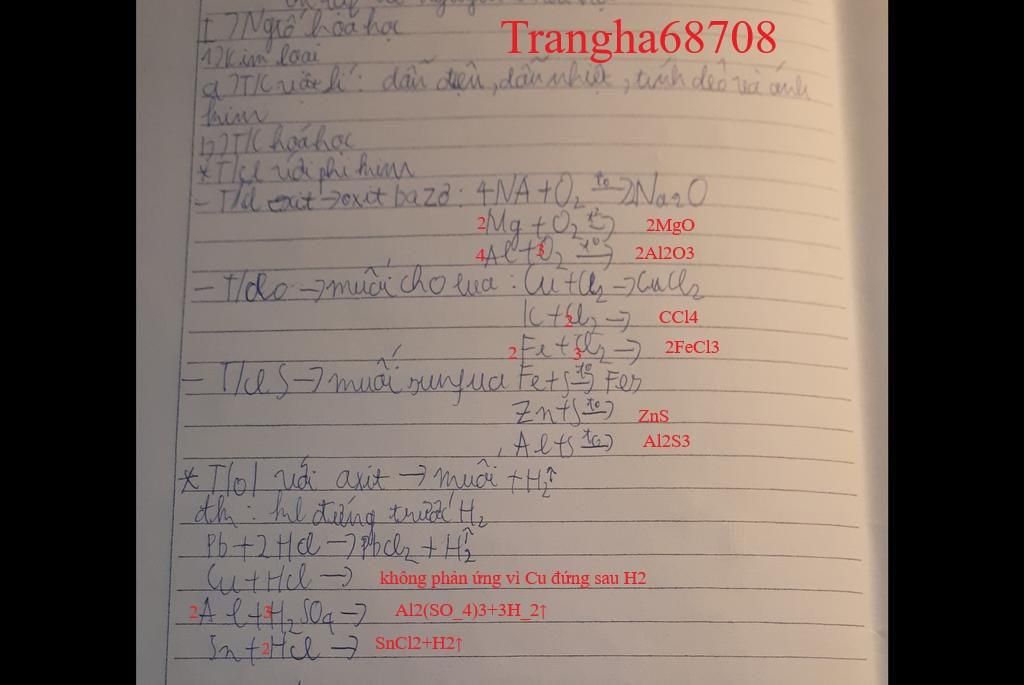 I > Ngtố hoá học
Trangha68708
1) Kim loại
a) T/c vật lí : dẫn điện, dẫn nhiệt, tính dẻo và ánh
kim
b) T/C hoá học
* T/d với phi kim
- T/d oxit → oxit bazơ : 4NA + O2 t° → 2Na2O
2Mg + O2 t° → 2MgO
4Al + 3O2 t° → 2Al2O3
- T/d → muối clo lua : Cu + Cl2 → CuCl2
K + 2Cl2 → CCl4
2Fe + 3Cl2 → 2FeCl3
- T/d S → muối sunfua Fe + S t° → FeS
Zn + S t° → ZnS
Al + S t° → Al2S3
* T/d với axit → muối + H2↑
đk : kl đứng trước H2
Pb + 2HCl → PbCl2 + H2↑
Cu + HCl → không phản ứng vì Cu đứng sau H2
2Al + 3H2SO4 → Al2(SO_4)3+3H_2↑
Sn + 2HCl → SnCl2+H2↑